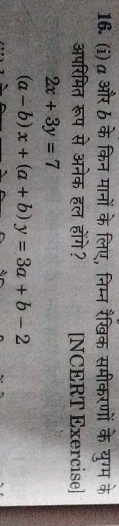 16. (i) a और b के किन मानों के लिए, निम्न रैखिक समीकरणों के युग्म के
अपरिमित रूप से अनेक हल होंगे? [NCERT Exercise]
2x + 3y = 7
(a − b) x + (a + b) y = 3a + b − 2